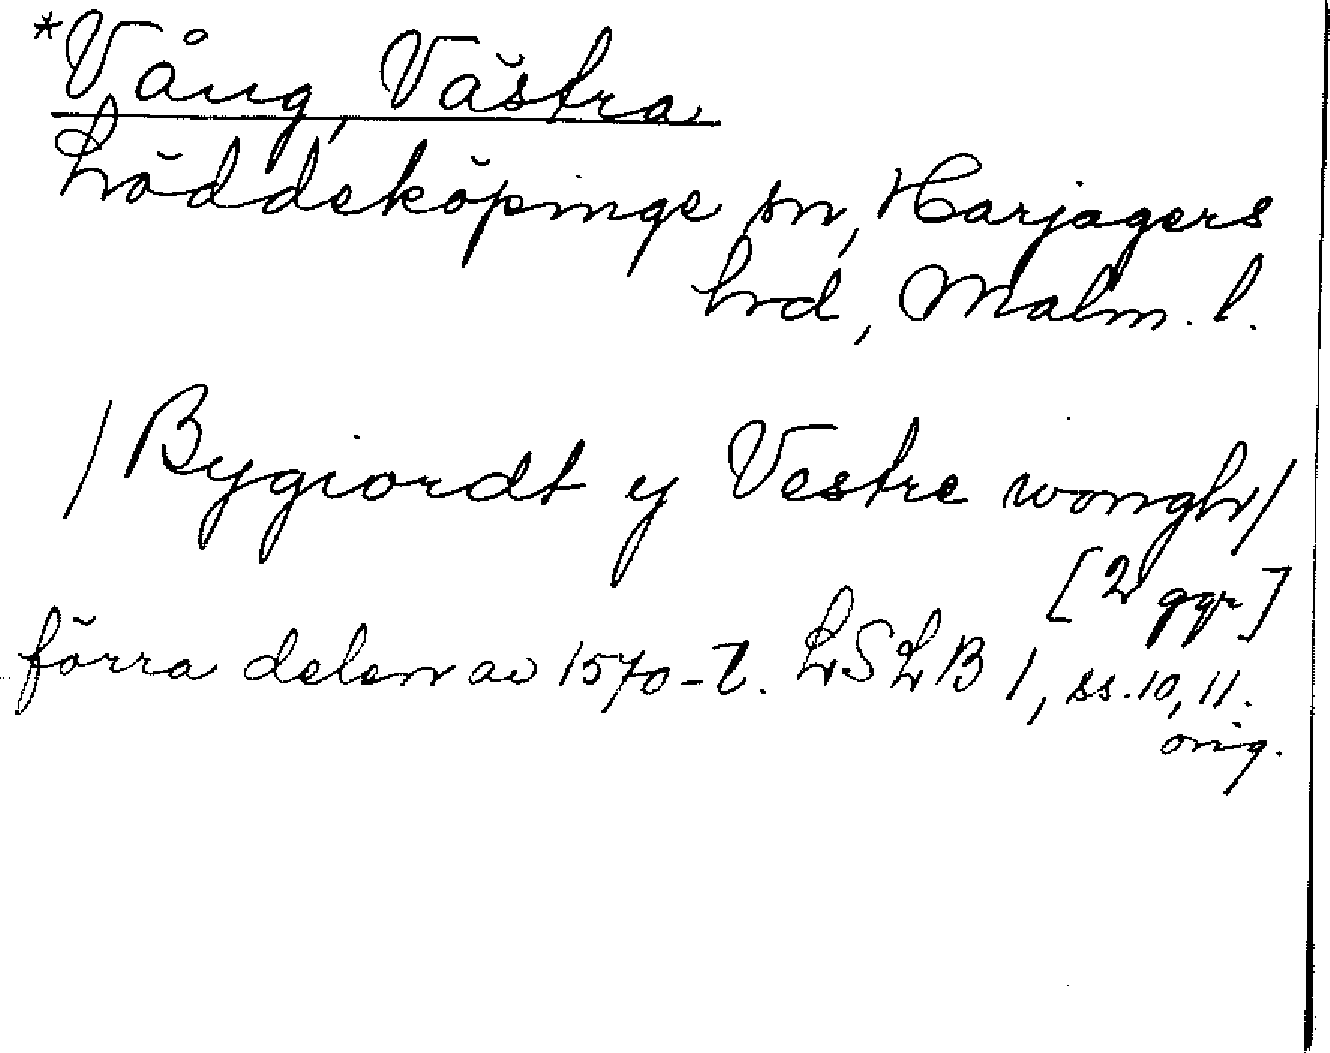 *Vång, Västra
Löddeköpinge sn, Harjagers
hrd, Malm. l.
/Bygiordt y Vestre wongh/
[2 ggr]
förra delen av 1570-t. LSLB 1, ss. 10, 11.
orig.